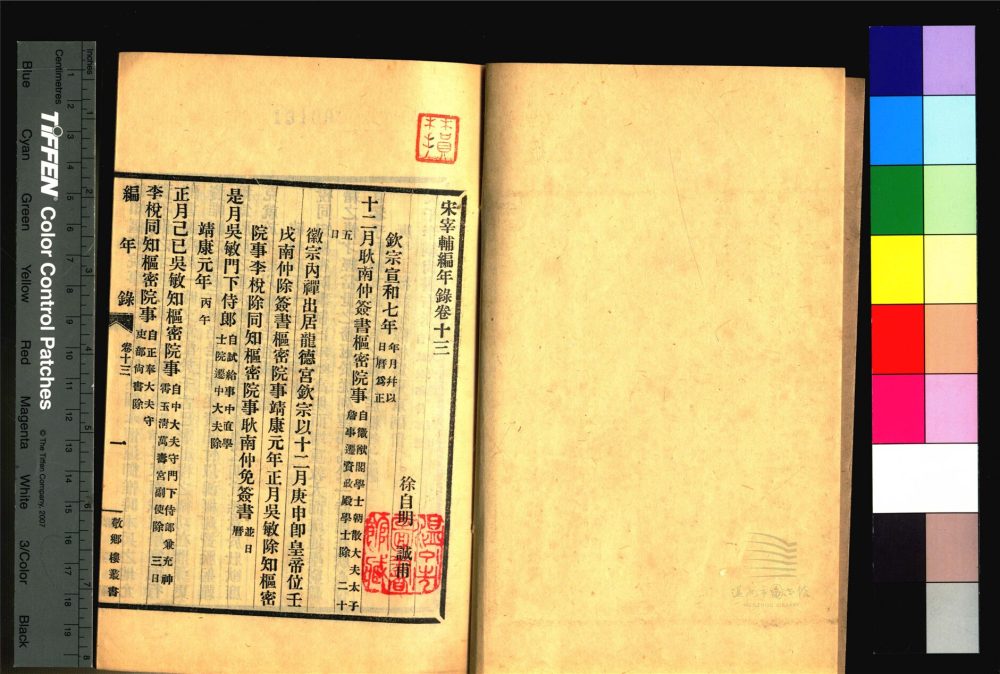 宋宰輔編年錄卷十三
徐自明 誠甫
欽宗宣和七年 年月幷以日曆爲正
十二月耿南仲簽書樞密院事 自徽猷閣學士朝散大夫太子詹事遷資政殿學士除 二十五日
徽宗內禪出居龍德宮欽宗以十二月庚申卽皇帝位壬
戌南仲除簽書樞密院事靖康元年正月吳敏除知樞密
院事李梲除同知樞密院事耿南仲免簽書 並日曆
是月吳敏門下侍郎 自試給事中直學士院遷中大夫除
靖康元年 丙午
正月己巳吳敏知樞密院事 自中大夫守門下侍郎兼充神霄玉淸萬壽宮副使除 三日
李梲同知樞密院事 自正奉大夫守吏部尙書除
編年錄 卷十三 一 敬鄉樓叢書
溫州市圖書館藏
WENZHOU LIBRARY
Inches
Centimetres
1 2 3 4 5 6 7 8
1 2 3 4 5 6 7 8 9 10 11 12 13 14 15 16 17 18 19
TIFFEN Color Control Patches
© The Tiffen Company, 2007
Blue Cyan Green Yellow Red Magenta White 3/Color Black